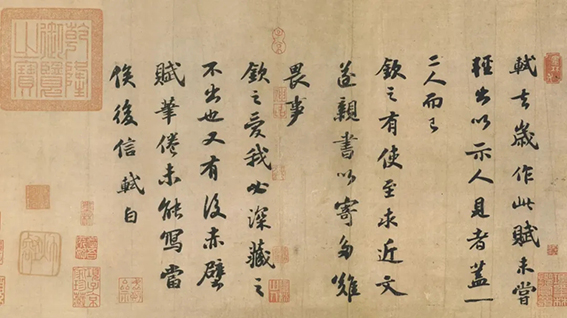 軾去歲作此賦未嘗
輕出以示人見者蓋一
二人而已
欽之有使至求近文
遂親書以寄多難
畏事
欽之愛我必深藏之
不出也又有後赤壁
賦筆倦未能寫當
俟後信軾白
乾隆御覽之寶